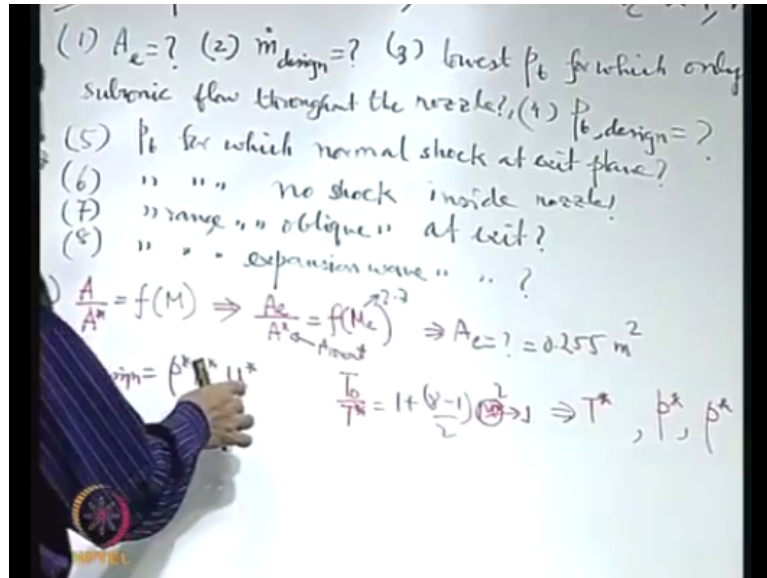 (1) Ae = ? (2) ṁ design = ? (3) lowest pb for which only
subsonic flow throughout the nozzle?, (4) pb, design = ?
(5) pb for which normal shock at exit plane?
(6) " " " no shock inside nozzle?
(7) " range " " oblique " at exit?
(8) " " " expansion wave " " ?
) A/A* = f(M) ⇒ Ae/A* = f(Me) 2.7 ⇒ Ae = ? = 0.255 m²
A throat
sign = ρ* * u*
T0/T* = 1 + (γ-1)/2 M² → 1 ⇒ T*, p*, ρ*
NPTEL